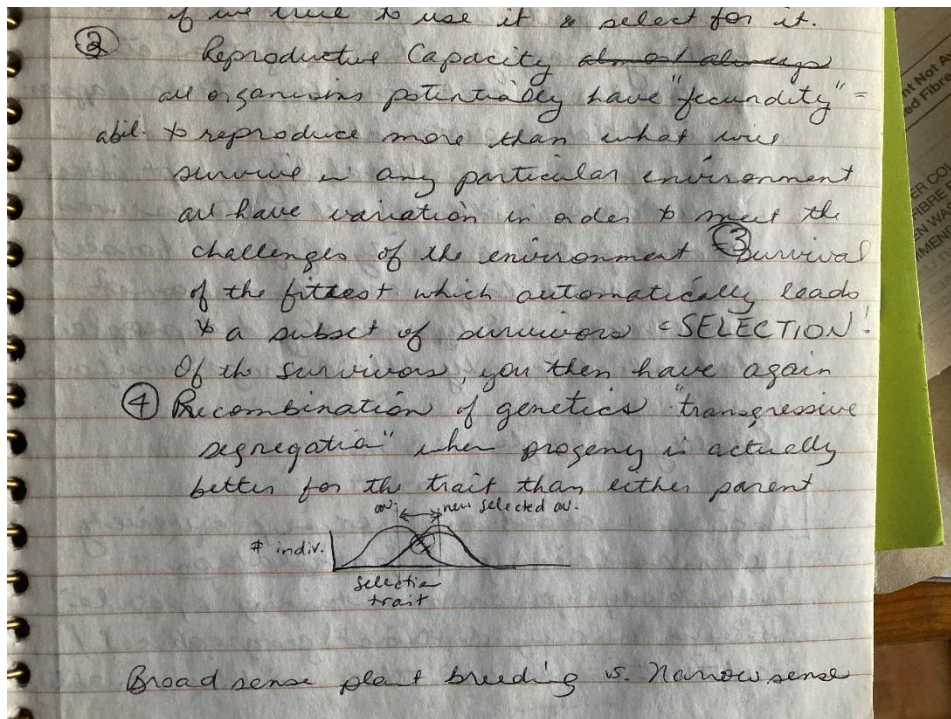 if we were to use it & select for it.
② Reproductive Capacity almost always
all organisms potentially have "fecundity" =
abil. to reproduce more than what will
survive in any particular environment
all have variation in order to meet the
challenges of the environment ③ Survival
of the fittest which automatically leads
to a subset of survivors = SELECTION!
Of the survivors, you then have again
④ Recombination of genetics "transgressive
segregation" when progeny is actually
better for the trait than either parent
av. new selected av.
# indiv.
selection
trait
Broad sense plant breeding vs. Narrow sense
nt Not A
ed Fibr
ER CO
FIBRE
EN W
MMEN